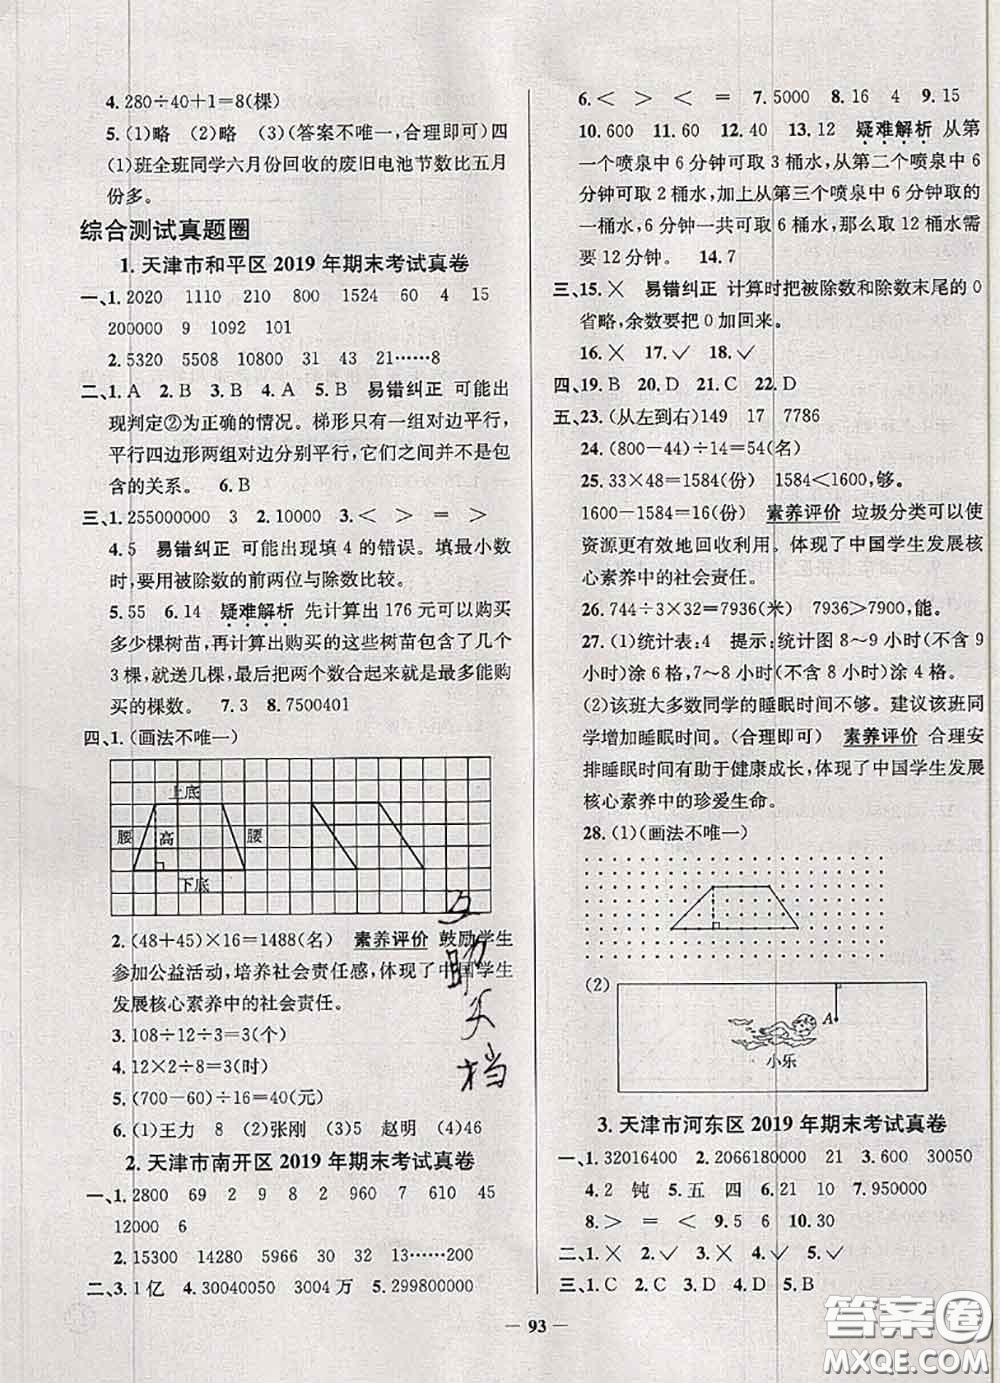 4. 280÷40+1=8(棵)
5. (1)略 (2)略 (3)(答案不唯一,合理即可)四
(1)班全班同学六月份回收的废旧电池节数比五月
份多。
综合测试真题圈
1. 天津市和平区 2019 年期末考试真卷
一、1. 2020 1110 210 800 1524 60 4 15
200000 9 1092 101
2. 5320 5508 10800 31 43 21……8
二、1. A 2. B 3. B 4. A 5. B 易错纠正 可能出
现判定②为正确的情况。梯形只有一组对边平行,
平行四边形两组对边分别平行,它们之间并不是包
含的关系。 6. B
三、1. 255000000 3 2. 10000 3. < > = >
4. 5 易错纠正 可能出现填 4 的错误。填最小数
时,要用被除数的前两位与除数比较。
5. 55 6. 14 疑难解析 先计算出 176 元可以购买
多少棵树苗,再计算出购买的这些树苗包含了几个
3 棵,就送几棵,最后把两个数合起来就是最多能购
买的棵数。 7. 3 8. 7500401
四、1. (画法不唯一)
上底
腰 高 腰
下底
2. (48+45)×16=1488(名) 素养评价 鼓励学生
参加公益活动,培养社会责任感,体现了中国学生
发展核心素养中的社会责任。
3. 108÷12÷3=3(个)
4. 12×2÷8=3(时)
5. (700-60)÷16=40(元)
6. (1)王力 8 (2)张刚 (3)5 赵明 (4)46
2. 天津市南开区 2019 年期末考试真卷
一、1. 2800 69 2 9 8 2 960 7 610 45
12000 6
2. 15300 14280 5966 30 32 13……200
二、3. 1 亿 4. 30040050 3004 万 5. 299800000
6. < > < = 7. 5000 8. 16 4 9. 15
10. 600 11. 60 12. 40 13. 12 疑难解析 从第
一个喷泉中 6 分钟可取 3 桶水,从第二个喷泉中 6
分钟可取 2 桶水,加上从第三个喷泉中 6 分钟取的
一桶水,6 分钟一共可取 6 桶水,那么取 12 桶水需
要 12 分钟。 14. 7
三、15. × 易错纠正 计算时把被除数和除数末尾的 0
省略,余数要把 0 加回来。
16. × 17. ✓ 18. ✓
四、19. B 20. D 21. C 22. D
五、23. (从左到右)149 17 7786
24. (800-44)÷14=54(名)
25. 33×48=1584(份) 1584<1600,够。
1600-1584=16(份) 素养评价 垃圾分类可以使
资源更有效地回收利用。体现了中国学生发展核
心素养中的社会责任。
26. 744÷3×32=7936(米) 7936>7900,能。
27. (1)统计表:4 提示:统计图 8~9 小时(不含 9
小时)涂 6 格,7~8 小时(不含 8 小时)涂 4 格。
(2)该班大多数同学的睡眠时间不够。建议该班同
学增加睡眠时间。(合理即可) 素养评价 合理安
排睡眠时间有助于健康成长,体现了中国学生发展
核心素养中的珍爱生命。
28. (1)(画法不唯一)
(2)
A
小乐
3. 天津市河东区 2019 年期末考试真卷
一、1. 32016400 2. 2066180000 3. 600 30050
4. 2 钝 5. 五 四 6. 21 10 7. 950000
8. > = < 9. 5 6 10. 30
二、1. × 2. ✓ 3. ✓ 4. ✓ 5. ✓
三、1. C 2. C 3. D 4. D 5. B
互助文档
— 93 —
答案圈
MXQE.COM